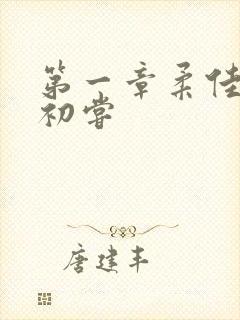 第一章柔佳
初尝
唐建丰